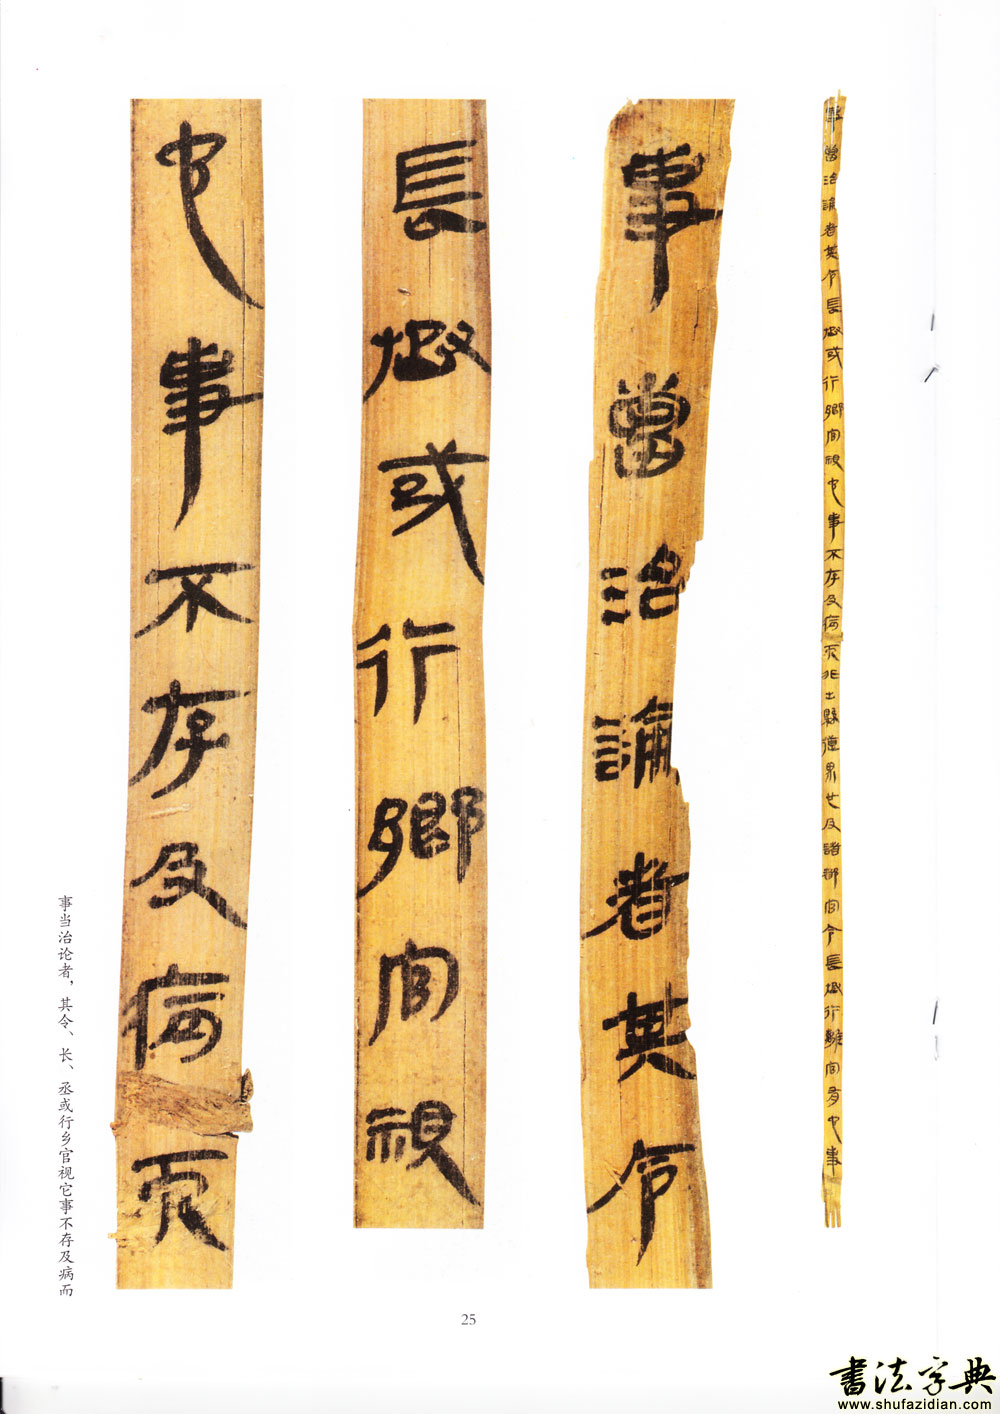 事當治論者其令長丞或行鄉官視它事不存及病而非出縣道界也及諸都官令長丞行離官有它事
事當治論者其令
長丞或行鄉官視
它事不存及病而
事当治论者，其令、长、丞或行乡官视它事不存及病而
25
书法字典
www.shufazidian.com